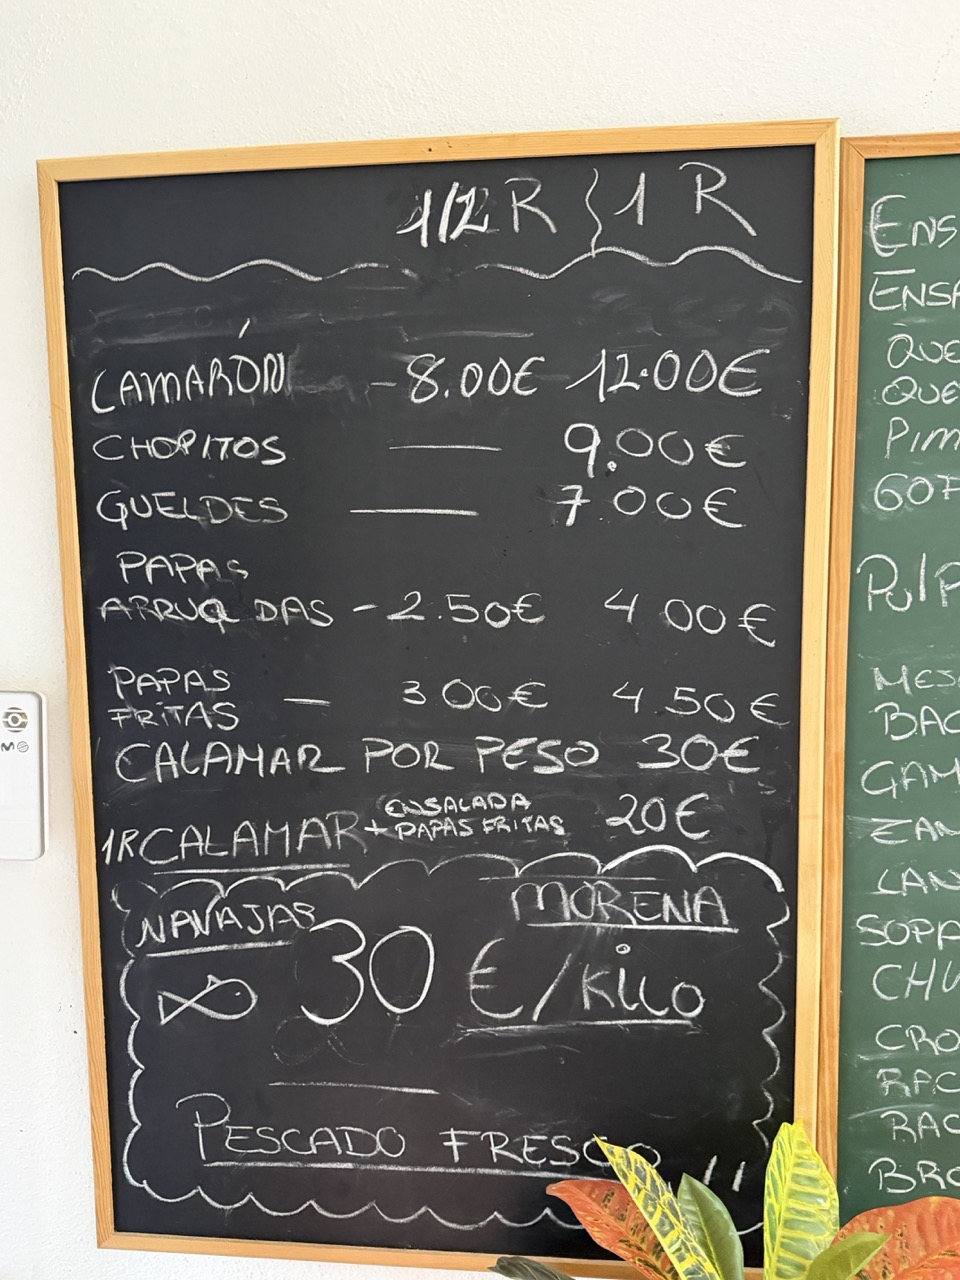 1/2 R 1 R
CAMARÓN - 8.00€ 12.00€
CHOPITOS — 9.00€
GUELDES — 7.00€
PAPAS
ARRUGADAS - 2.50€ 4 00€
PAPAS
FRITAS — 3 00€ 4.50€
CALAMAR POR PESO 30€
1R CALAMAR + ENSALADA
PAPAS FRITAS 20€
NAVAJAS MORENA
30 €/Kilo
PESCADO FRESCO
ENS
ENSA
QUE
QUE
PIM
GOF
PULP
MES
BAC
GAM
SOPA
CHU
CRO
RAC
RAC
BRO